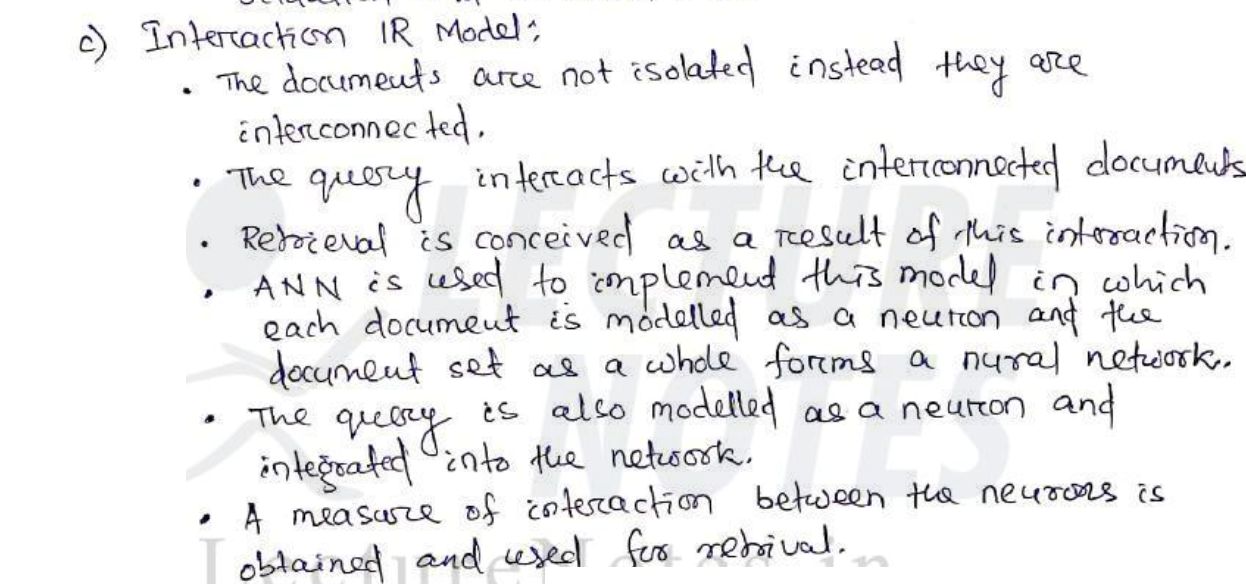 c) Interaction IR Model:
• The documents are not isolated instead they are
interconnected.
• The query interacts with the interconnected documents
• Retrieval is conceived as a result of this interaction.
• ANN is used to implement this model in which
each document is modelled as a neuron and the
document set as a whole forms a nural network.
• The query is also modelled as a neuron and
integrated into the network.
• A measure of interaction between the neurons is
obtained and used for retrival.
LECTURE
NOTES
LectureNotes.in